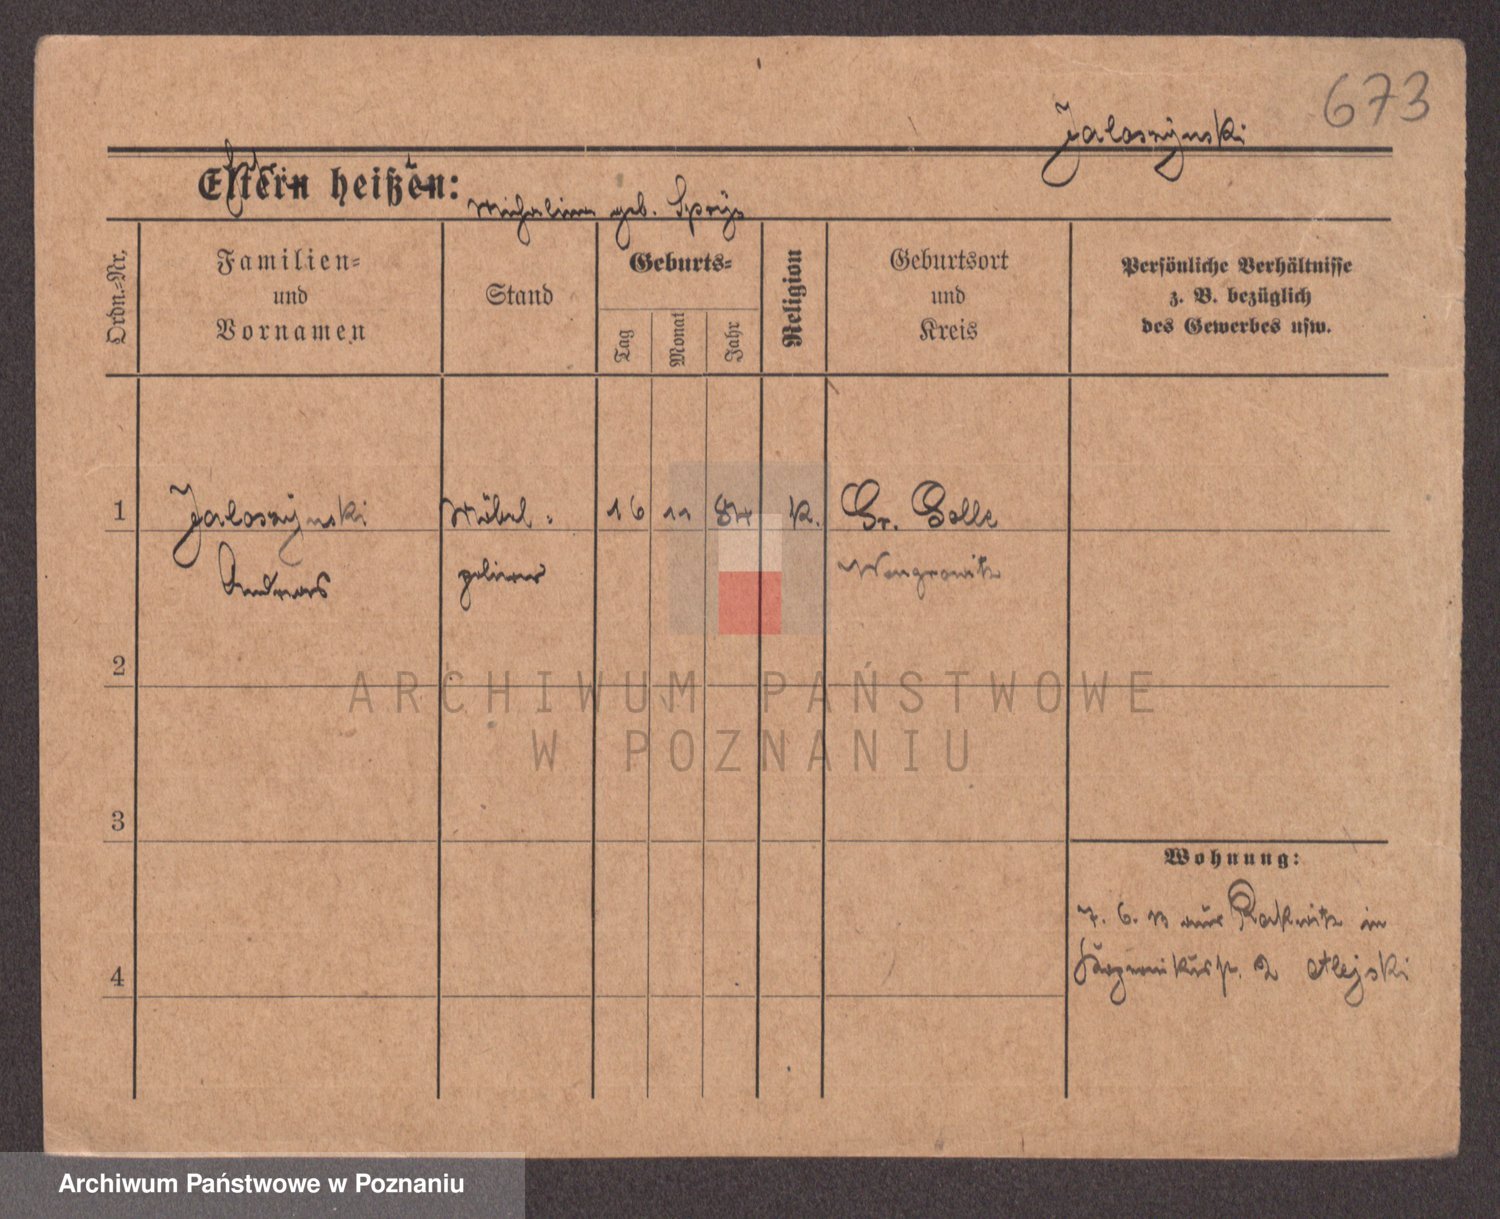 673
Jaloszynski
Eltern heißen:
Michalina geb.
Ordn.-Nr.
Familien-
und
Vornamen
Stand
Geburts-
Tag
Monat
Jahr
Religion
Geburtsort
und
Kreis
Persönliche Verhältnisse
z. B. bezüglich
des Gewerbes usw.
1
Jaloszynski
Möbel-
16
11
84
K.
Gr. Golle
Andreas
polierer
Wongrowitz
2
ARCHIWUM PAŃSTWOWE
W POZNANIU
3
Wohnung:
7. 6. 13 aus Rakwitz in
2 Alejski
4
Archiwum Państwowe w Poznaniu